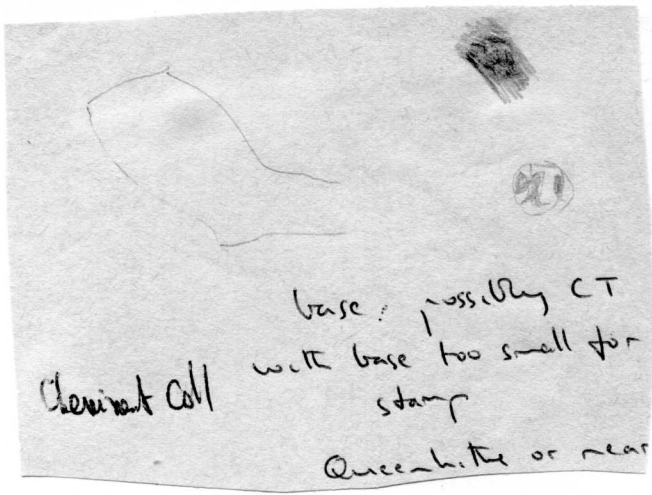 base: possibly CT
with base too small for
stamp
Coll
Queenhithe or near